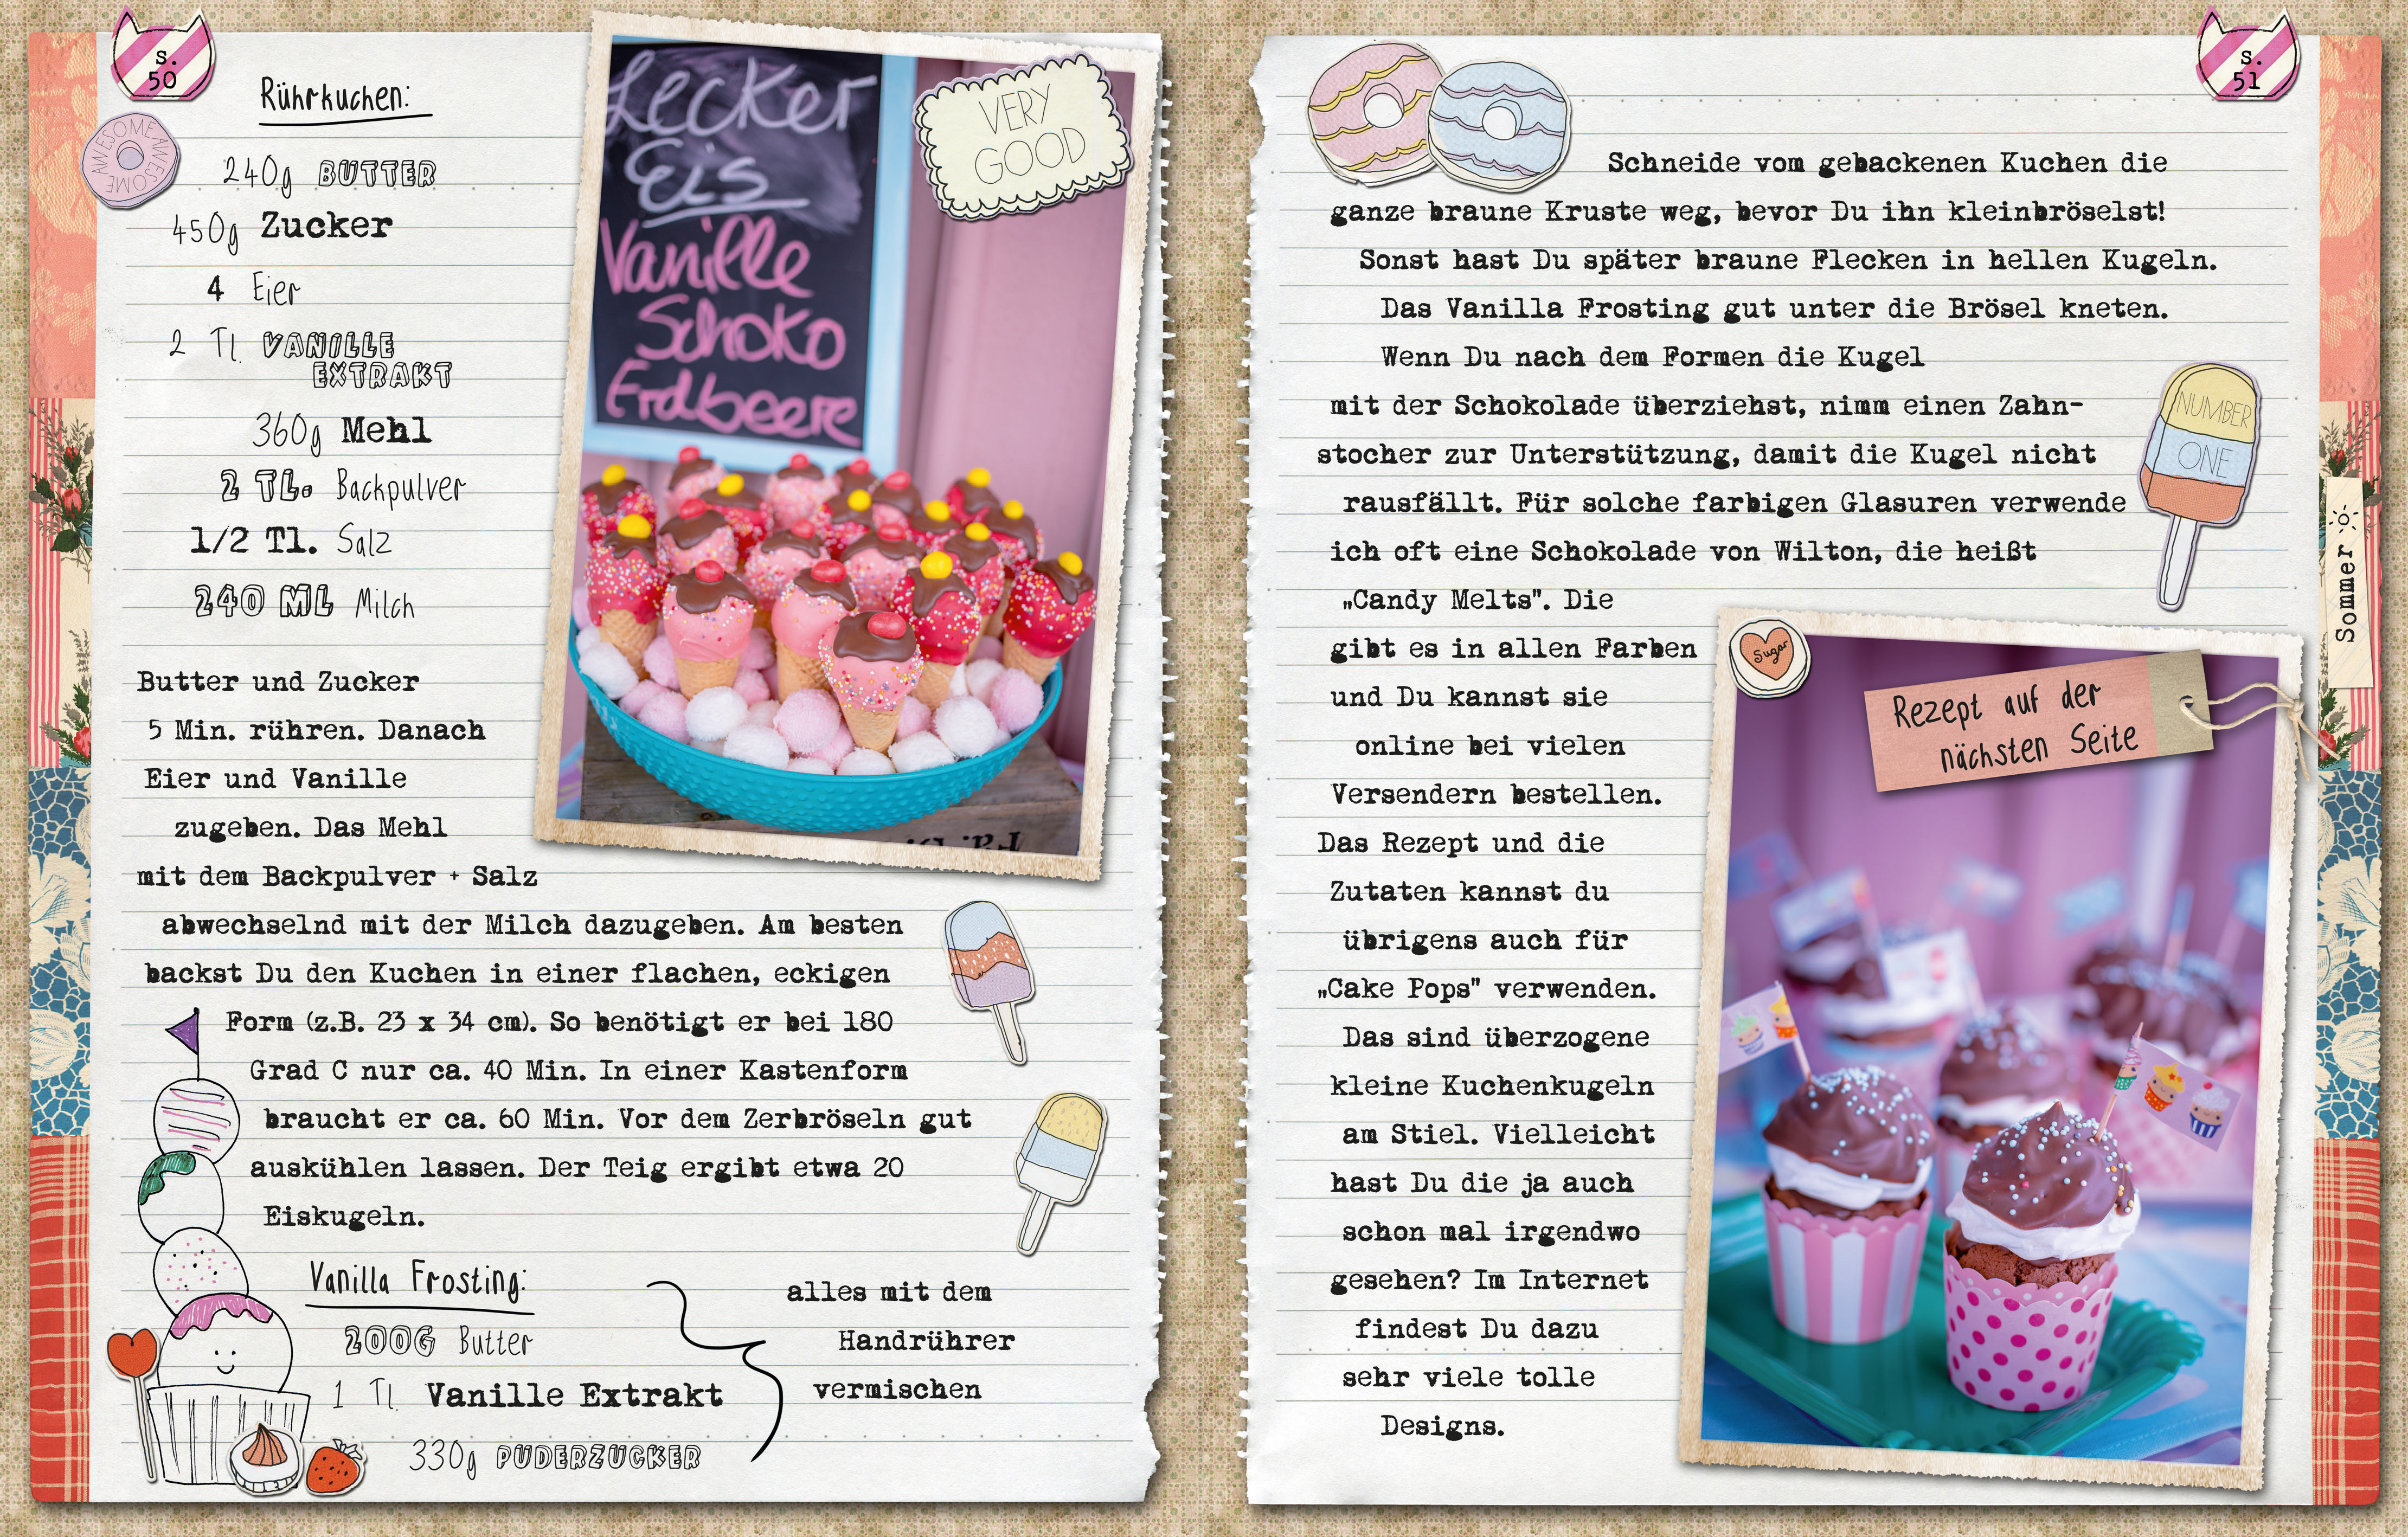 s.
50
Rührkuchen:
AWESOME AWESOME
240g BUTTER
450g Zucker
4 Eier
2 Tl. VANILLE
EXTRAKT
360g Mehl
2 TL. Backpulver
1/2 Tl. Salz
240 ML Milch
Butter und Zucker
5 Min. rühren. Danach
Eier und Vanille
zugeben. Das Mehl
mit dem Backpulver + Salz
abwechselnd mit der Milch dazugeben. Am besten
backst Du den Kuchen in einer flachen, eckigen
Form (z.B. 23 x 34 cm). So benötigt er bei 180
Grad C nur ca. 40 Min. In einer Kastenform
braucht er ca. 60 Min. Vor dem Zerbröseln gut
auskühlen lassen. Der Teig ergibt etwa 20
Eiskugeln.
Vanilla Frosting:
200G Butter
1 Tl. Vanille Extrakt
330g PUDERZUCKER
alles mit dem
Handrührer
vermischen
Lecker
Eis
Vanille
Schoko
Erdbeere
VERY
GOOD
s.
51
Schneide vom gebackenen Kuchen die
ganze braune Kruste weg, bevor Du ihn kleinbröselst!
Sonst hast Du später braune Flecken in hellen Kugeln.
Das Vanilla Frosting gut unter die Brösel kneten.
Wenn Du nach dem Formen die Kugel
mit der Schokolade überziehst, nimm einen Zahn-
stocher zur Unterstützung, damit die Kugel nicht
rausfällt. Für solche farbigen Glasuren verwende
ich oft eine Schokolade von Wilton, die heißt
„Candy Melts". Die
gibt es in allen Farben
und Du kannst sie
online bei vielen
Versendern bestellen.
Das Rezept und die
Zutaten kannst du
übrigens auch für
„Cake Pops" verwenden.
Das sind überzogene
kleine Kuchenkugeln
am Stiel. Vielleicht
hast Du die ja auch
schon mal irgendwo
gesehen? Im Internet
findest Du dazu
sehr viele tolle
Designs.
NUMBER
ONE
Sommer
Sugar
Rezept auf der
nächsten Seite